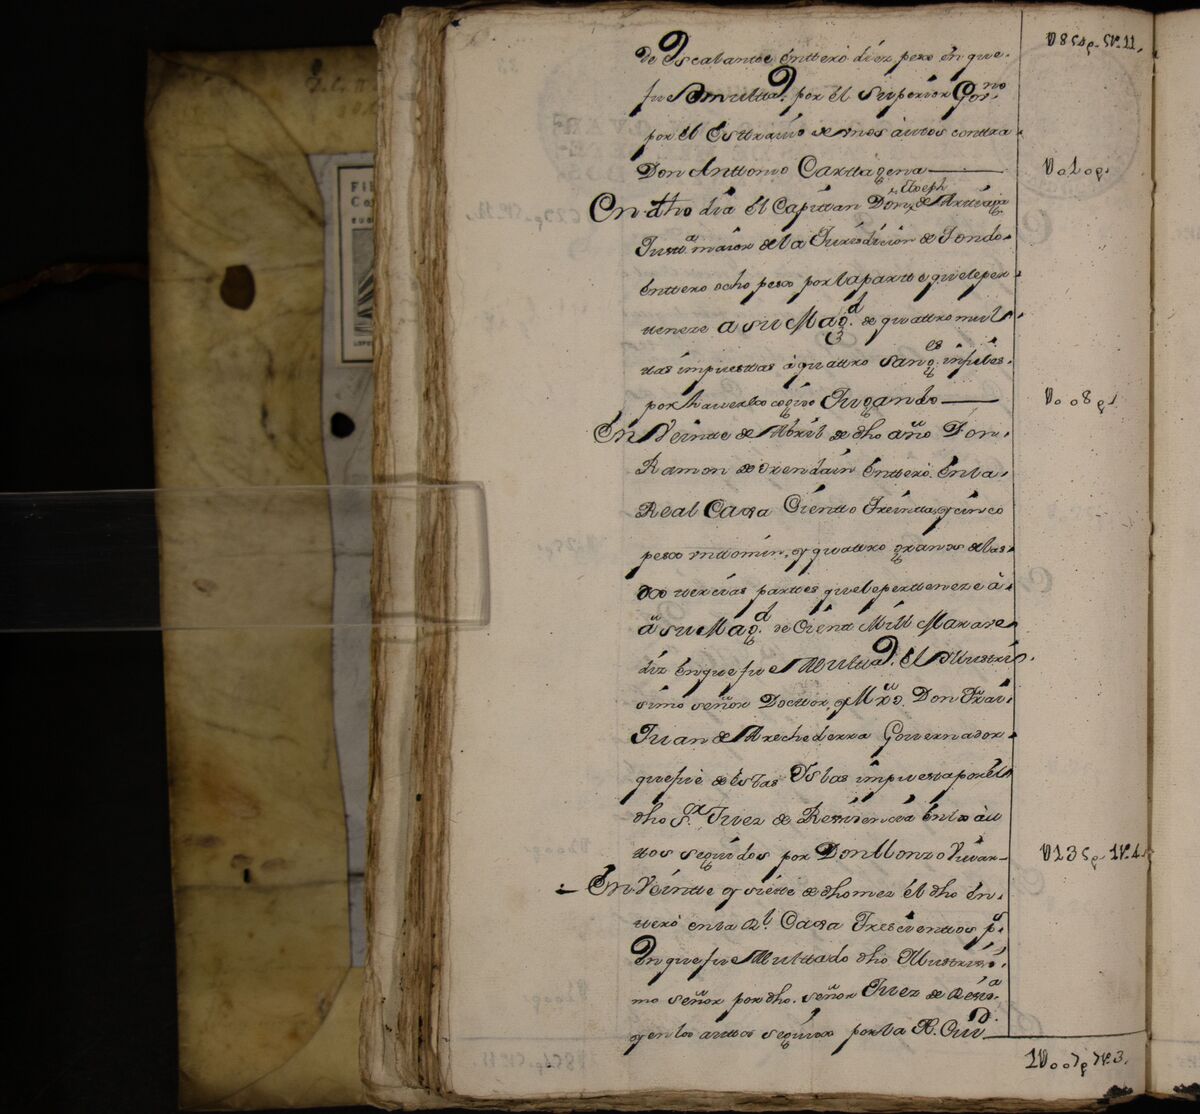 de Escalantte enttero diez pesos en que
fue Multad. por el Superior Gov.no
por el Esttravio de unos autos conttra
Don Anttonio Carttagena
En dho dia el Capittan Don Joseph de Artteaga
Justt.a maior de la Jurisdicion de Tondo
enttero ocho pesos por la partte que le per
tteneze a su Mag.d de quattro mul
ttas impuesttas à quattro Sangleyes infieles
por haverlos cogido Jugando
En Veintte de Abril de dho año Don
Ramon de Orendain enttero en la
Real Caxa Cientto Treintta, y cinco
pesos un ttomin, y quattro granos de las
dos ttercias parttes que le pertteneze à
su Mag.d de Cientt Mill Marave
diz en que fue Multtad. el Illusttri
simo señor Docttor, y Mrõ. Don Fray
Juan de Arechederra Governador
que fue de estas Islas impuesta por el
dho S.r Juez de Residencia en los au
ttos seguidos por Don Alonzo
En Veintte y siette de dho mez el dho en
ttero en la R.l Caxa Trescienttos p.s
en que fue Multtado dho Illusttrissi
mo señor por dho. señor Juez de Resid.a
y en los auttos seguidos por la R.
U854p. 5r. 11.
U010p.
U008p.
U135p. 1r. 4.
1U007p. 7r. 3.